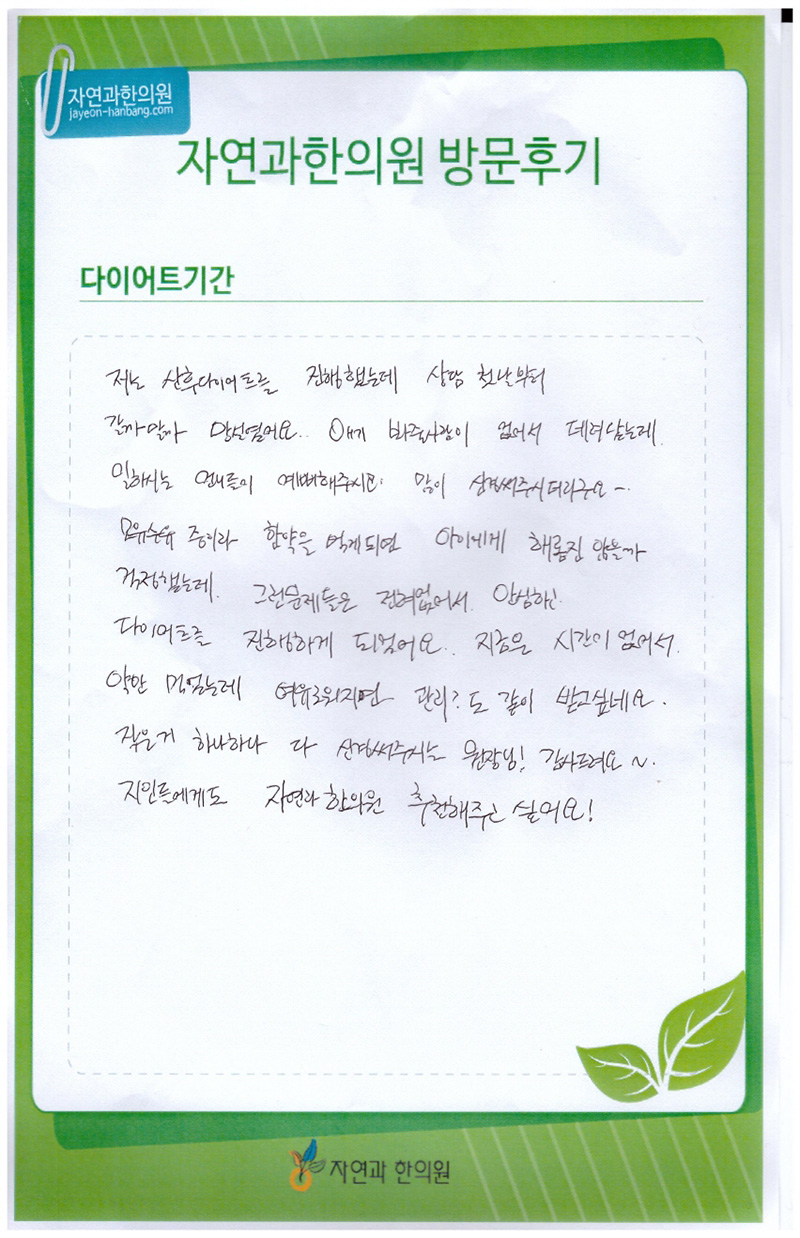 자연과한의원
jayeon-hanbang.com
자연과한의원 방문후기
다이어트기간
저는 산후다이어트를 진행했는데 상담 첫날부터
갈까말까 망설였어요.. 애기 봐줄사람이 없어서 데려갔는데
일하시는 언니들이 예뻐해주시고 많이 신경써주시더라구요~
모유수유 중이라 한약을 먹게되면 아이에게 해롭진 않을까
걱정했는데. 그런문제들은 전혀없어서 안심하고
다이어트를 진행하게 되었어요.. 지금은 시간이 없어서
약만 먹었는데 여유로워지면 관리?도 같이 받고싶네요.
작은거 하나하나 다 신경써주시는 원장님! 감사드려요~.
지인들에게도 자연과한의원 추천해주고 싶어요!
자연과 한의원